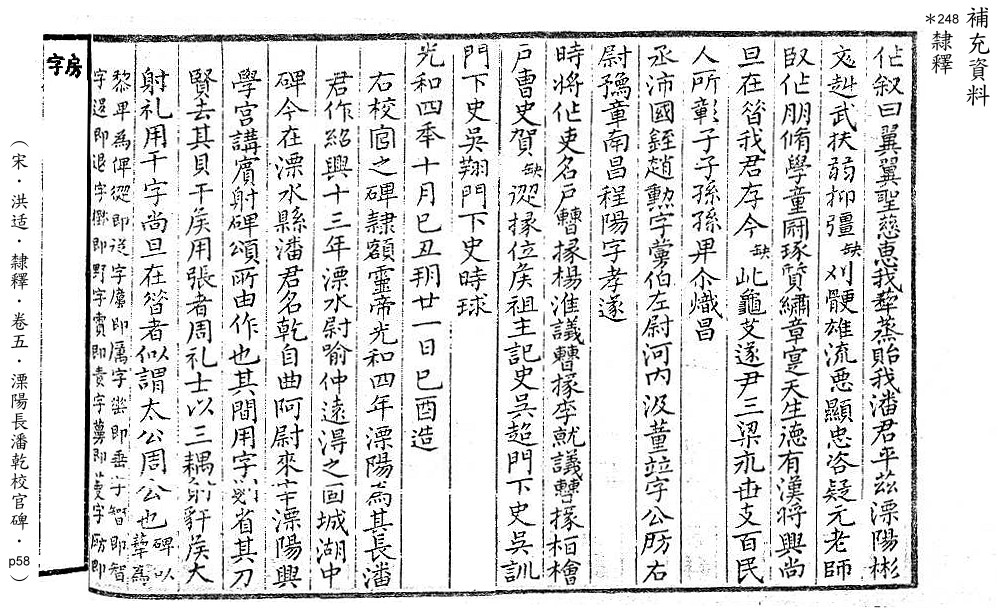 補充資料
*248 隸釋
作叙曰翼翼聖慈惠我犂蒸貽我潘君平茲溧陽彬
文赳武扶弱抑彊缺刈骾雄流惡顯忠咨疑元老師
臤作朋脩學童冊琢質繡章寔天生德有漢將興尚
旦在昔我君存今缺此龜艾遂尹三梁永世支百民
人所彰子子孫孫畀尒熾昌
丞沛國銍趙勳字蔓伯左尉河內汲董竝字公肪右
尉豫章南昌程陽字孝遂
時將作吏名戶曹掾楊淮議曹掾李就議曹掾栢檜
戶曹史賀缺從掾位矦祖主記史吳超門下史吳訓
門下史吳翔門下史時球
光和四年十月己丑朔廿一日己酉造
右校官之碑隸額靈帝光和四年溧陽為其長潘
君作紹興十三年溧水尉喻仲遠得之固城湖中
碑今在溧水縣潘君名乾自曲阿尉來宰溧陽興
學宮講賓射碑頌所由作也其間用字則省其刀
賢去其貝干矦用張者周礼士以三耦射豻矦大
射礼用干字尚旦在昔者似謂太公周公也碑以犂為
黎畀為俾從即從字厲即厲字埀即垂字智即智
字退即退字壄即野字責即責字蔓即蔓字肪即
房字
(宋·洪适·隸釋·卷五·溧陽長潘乾校官碑·p58)